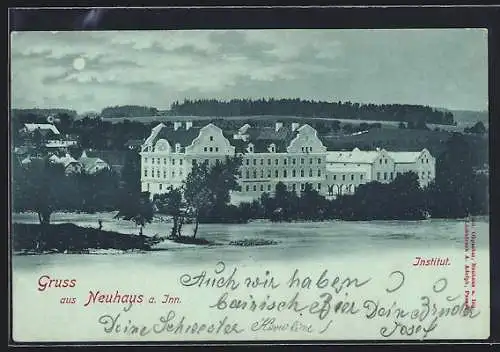 Gruss
aus Neuhaus a. Inn.
Institut.
Auch wir haben
bairisch Bier
Dein Bruder
Josef
Deine Schwester